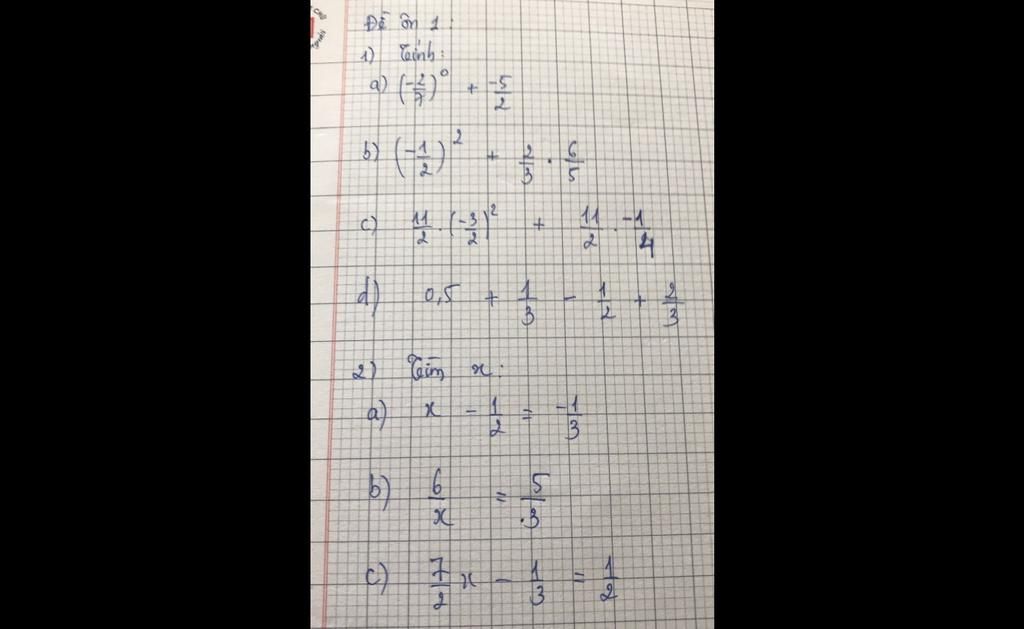 Đề ôn 1:
1) Tính:
a) (-2/7)^0 + -5/2
b) (-1/2)^2 + 2/3 . 6/5
c) 11/2 . (-3/2)^2 + 11/2 . -1/4
d) 0,5 + 1/3 - 1/2 + 2/3
2) Tìm x:
a) x - 1/2 = -1/3
b) 6/x = 5/3
c) 7/2 x - 1/3 = 1/2